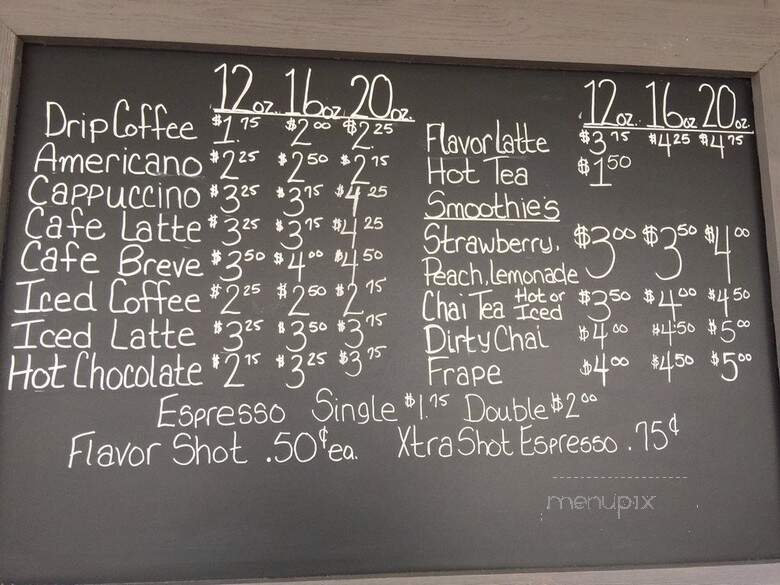 12oz. 16oz. 20oz.
Drip Coffee $1.75 $2.00 $2.25
Americano $2.25 $2.50 $2.75
Cappuccino $3.25 $3.75 $4.25
Cafe Latte $3.25 $3.75 $4.25
Cafe Breve $3.50 $4.00 $4.50
Iced Coffee $2.25 $2.50 $2.75
Iced Latte $3.25 $3.50 $3.75
Hot Chocolate $2.75 $3.25 $3.75
12oz. 16oz 20oz.
Flavor latte $3.75 $4.25 $4.75
Hot Tea $1.50
Smoothies
Strawberry, $3.00 $3.50 $4.00
Peach, Lemonade
Chai Tea Hot or Iced $3.50 $4.00 $4.50
Dirty Chai $4.00 $4.50 $5.00
Frape $4.00 $4.50 $5.00
Espresso Single $1.75 Double $2.00
Flavor Shot .50¢ ea. Xtra Shot Espresso .75¢
menupix